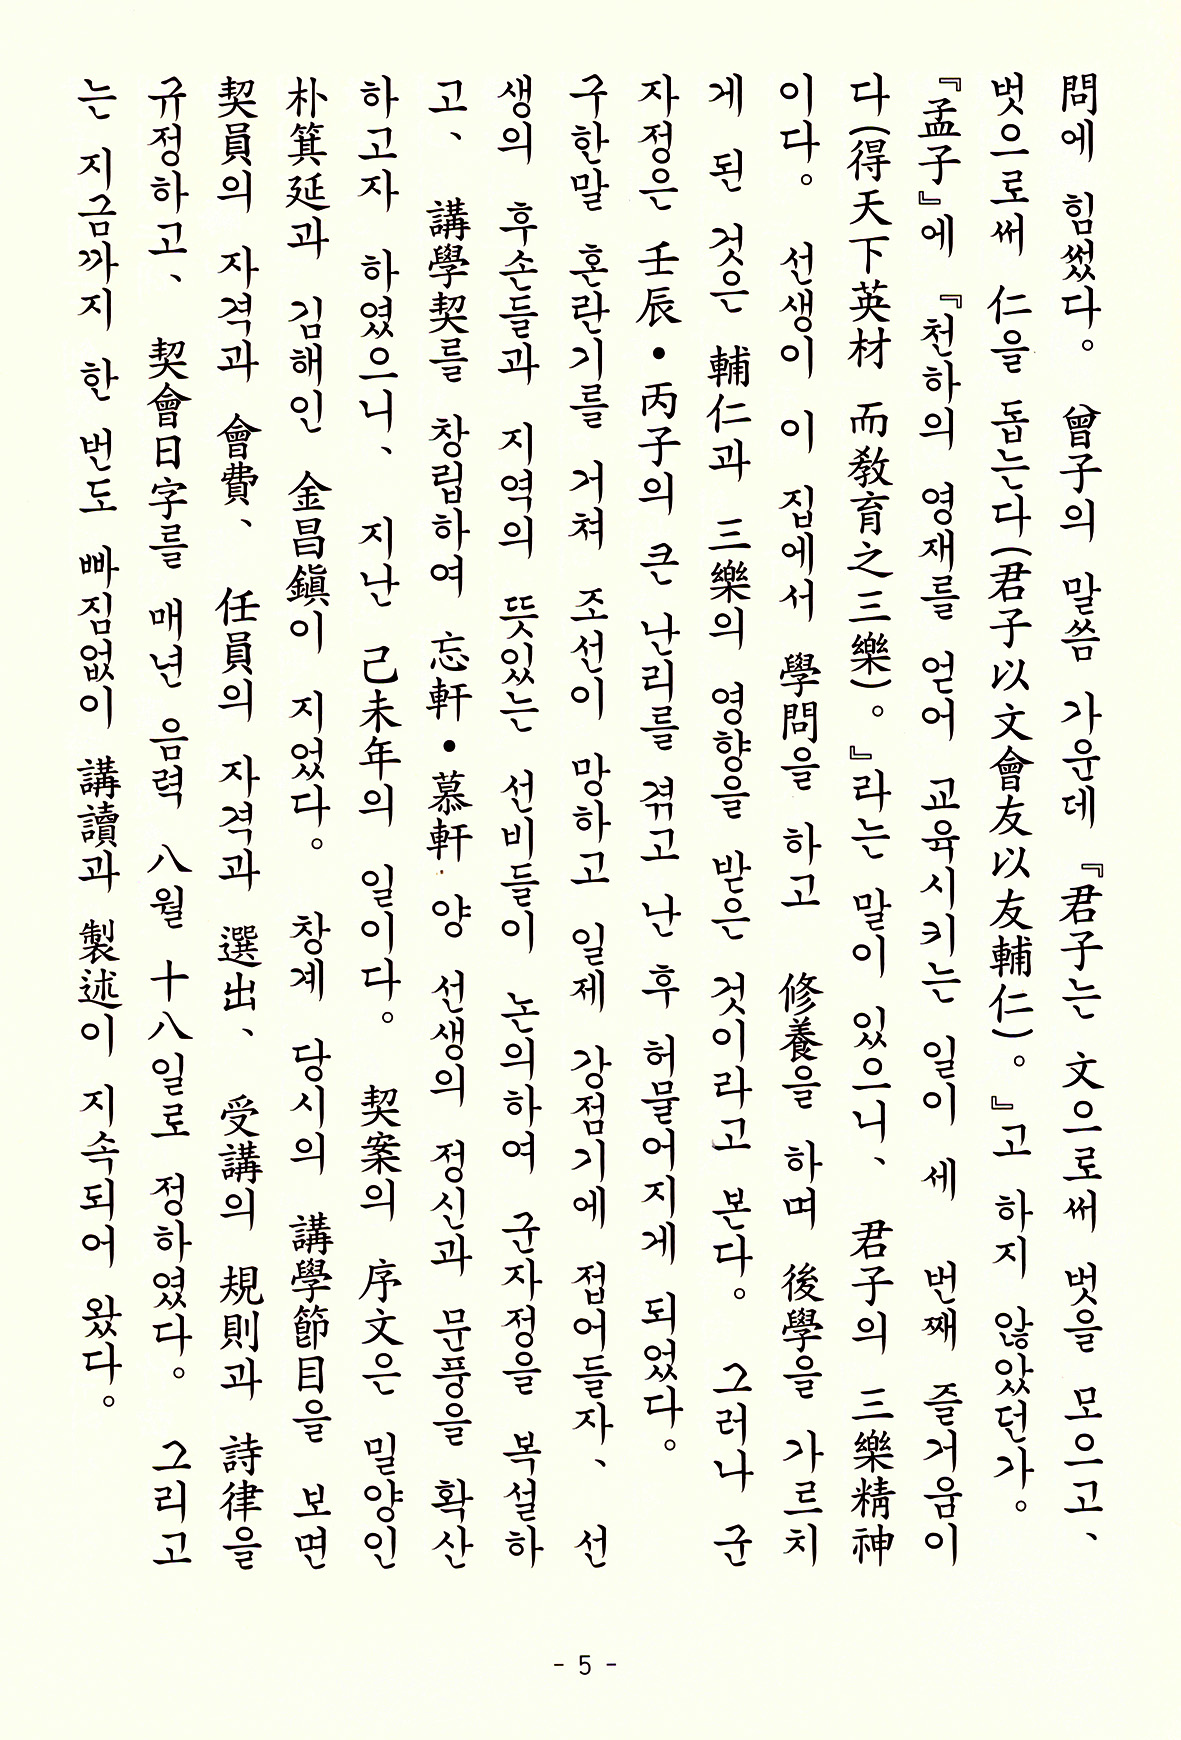 問에 힘썼다。 曾子의 말씀 가운데 『君子는 文으로써 벗을 모으고、
벗으로써 仁을 돕는다(君子以文會友以友輔仁)。』고 하지 않았던가。
『孟子』에 『천하의 영재를 얻어 교육시키는 일이 세 번째 즐거움이
다(得天下英材 而敎育之三樂)。』라는 말이 있으니、 君子의 三樂精神
이다。 선생이 이 집에서 學問을 하고 修養을 하며 後學을 가르치
게 된 것은 輔仁과 三樂의 영향을 받은 것이라고 본다。 그러나 군
자정은 壬辰•丙子의 큰 난리를 겪고 난 후 허물어지게 되었다。
구한말 혼란기를 거쳐 조선이 망하고 일제 강점기에 접어들자、 선
생의 후손들과 지역의 뜻있는 선비들이 논의하여 군자정을 복설하
고、 講學契를 창립하여 忘軒•慕軒 양 선생의 정신과 문풍을 확산
하고자 하였으니、 지난 己未年의 일이다。 契案의 序文은 밀양인
朴箕延과 김해인 金昌鎭이 지었다。 창계 당시의 講學節目을 보면
契員의 자격과 會費、 任員의 자격과 選出、 受講의 規則과 詩律을
규정하고、 契會日字를 매년 음력 八월 十八일로 정하였다。 그리고
는 지금까지 한 번도 빠짐없이 講讀과 製述이 지속되어 왔다。
- 5 -